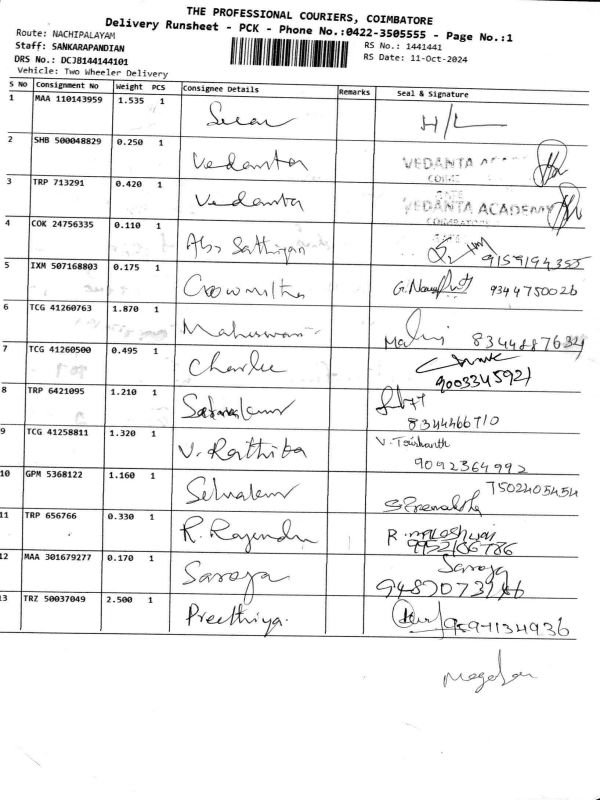 THE PROFESSIONAL COURIERS, COIMBATORE
Delivery Runsheet - PCK - Phone No.:0422-3505555 - Page No.:1
Route: NACHIPALAYAM
Staff: SANKARAPANDIAN RS No.: 1441441
DRS No.: DCJB144144101 RS Date: 11-Oct-2024
Vehicle: Two Wheeler Delivery
S No Consignment No Weight PCS Consignee Details Remarks Seal & Signature
1 MAA 110143959 1.535 1 H/L
2 SHB 500048829 0.250 1 Vedanta VEDANTA
3 TRP 713291 0.420 1 Vedanta VEDANTA ACADEMY
4 COK 24756335 0.110 1 Sathiyan 9159194355
5 IXM 507168803 0.175 1 9344750026
6 TCG 41260763 1.870 1 8344887634
7 TCG 41260500 0.495 1 Charlee
9003345921
8 TRP 6421095 1.210 1
8344466710
9 TCG 41258811 1.320 1 V. Rathiba
9092364992
10 GPM 5368122 1.160 1 Selvakumr 7502405454
11 TRP 656766 0.330 1 R. Rajendu
9952166786
12 MAA 301679277 0.170 1 Saroja Saroja
13 TRZ 50037049 2.500 1 Preethiya.